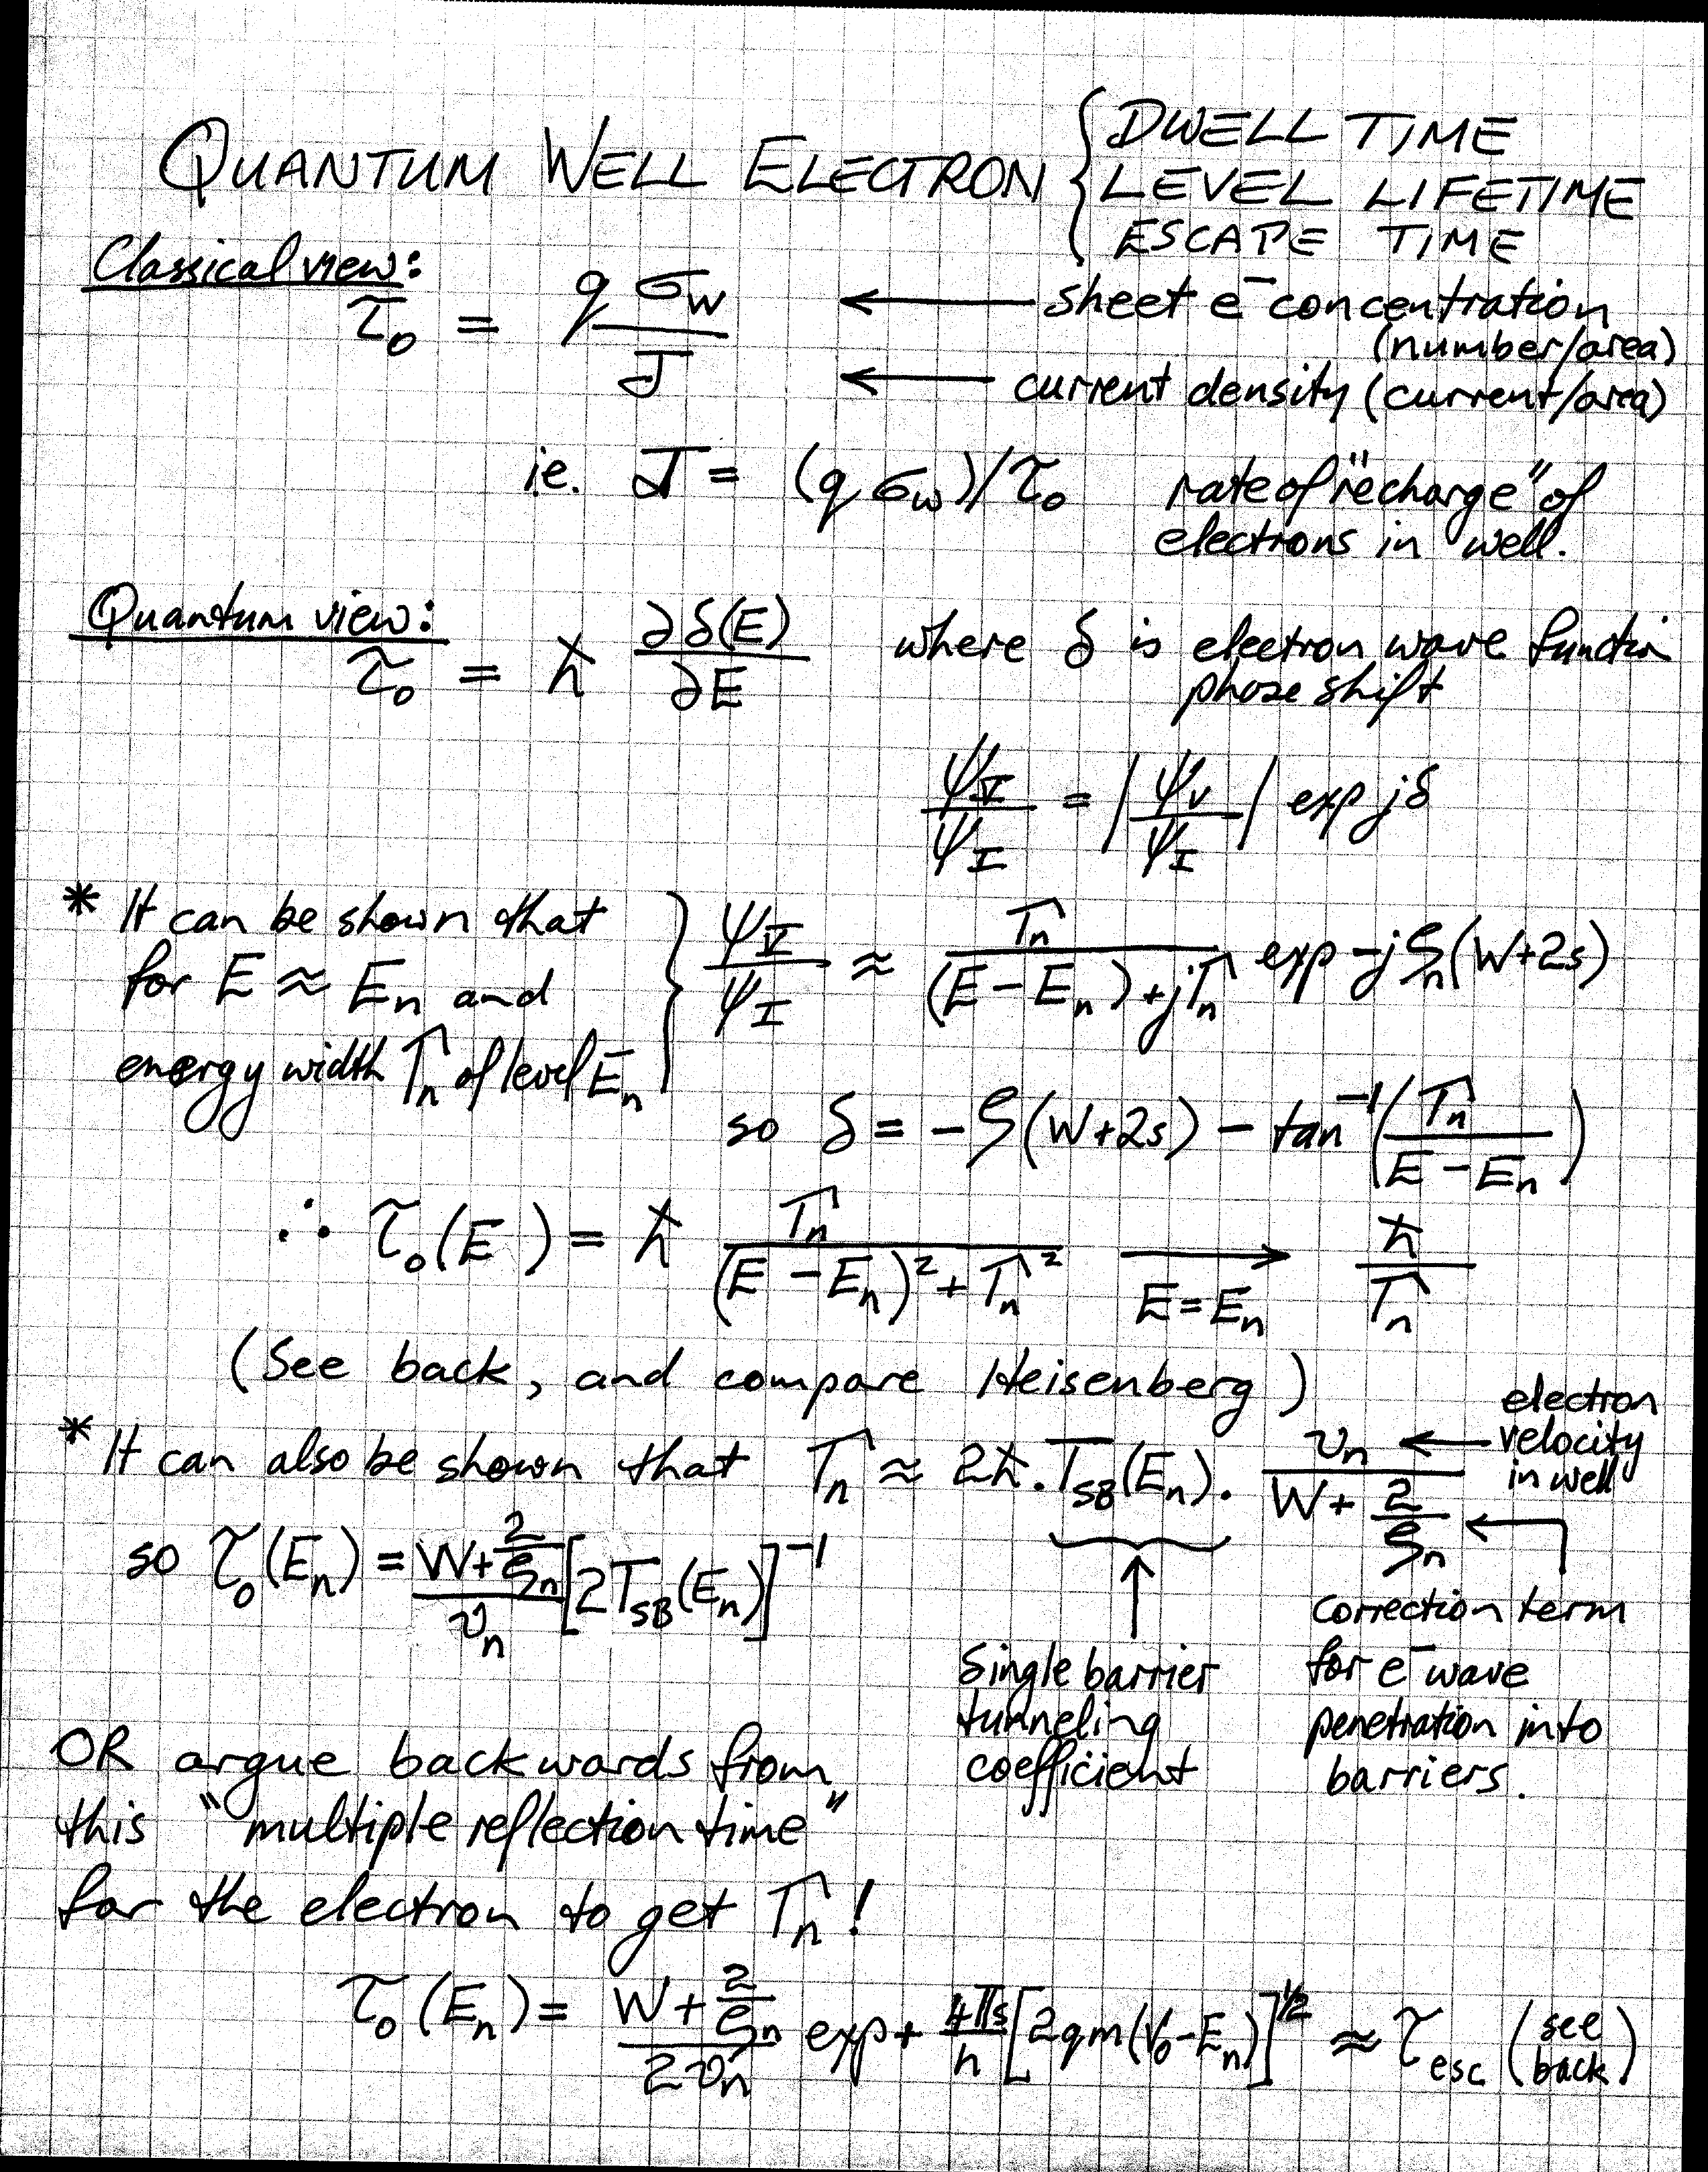 QUANTUM WELL ELECTRON { DWELL TIME
LEVEL LIFETIME
ESCAPE TIME
Classical view:
τ₀ = q σ_w / J
← sheet e⁻ concentration
(number/area)
← current density (current/area)
ie. J = (q σ_w)/τ₀ rate of "recharge" of
electrons in well.
Quantum view:
τ₀ = ħ ∂δ(E)/∂E where δ is electron wave functin
phase shift
ψ_V/ψ_I = |ψ_V/ψ_I| exp jδ
* It can be shown that
for E ≈ E_n and
energy width Γ_n of level E_n
} ψ_V/ψ_I ≈ Γ_n/((E - E_n) + jΓ_n) exp -jξ_n(W+2s)
so δ = -ξ(W+2s) - tan⁻¹(Γ_n/(E - E_n))
∴ τ₀(E) = ħ Γ_n/((E - E_n)² + Γ_n²) → E=E_n ħ/Γ_n
(See back, and compare Heisenberg)
* It can also be shown that Γ_n ≈ 2ħ.T_SB(E_n). v_n/(W + 2/ξ_n)
← electron
velocity
in well
so τ₀(E_n) = (W + 2/ξ_n)/v_n [2T_SB(E_n)]⁻¹
Single barrier
tunneling
coefficient
correction term
for e⁻ wave
penetration into
barriers.
OR argue backwards from
this "multiple reflection time"
for the electron to get Γ_n!
τ₀(E_n) = (W + 2/ξ_n)/(2v_n) exp + 4πs/h [2qm(V₀-E_n)]^½ ≈ τ_esc (see
back)